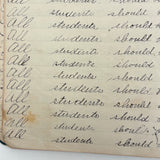 All students should
All students should
All students should
All students should
All students should
All students should
All students should
All students should
All students should
All students should